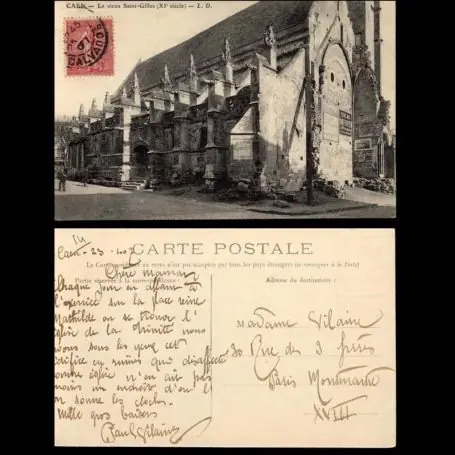 CAEN. — Le vieux Saint-Gilles (XIe siècle) — L. D.
CALVADOS
14
CARTE POSTALE
Caen - 23 - 4.07
La Correspondance au recto n'est pas acceptée par tous les pays étrangers (se renseigner à la Poste)
Partie réservée à la correspondance :
Adresse du destinataire :
Chère maman
Chaque jour en allant à
l'exercice sur la place reine
Mathilde où se trouve l'
église de la Trinité nous
avons sous les yeux cet
édifice en ruines que
comme église n'en ait pas
moins un clocher d'où l'
on sonne les cloches.
Mille gros baisers
Paul Vilaine
Madame Vilaine
30 Rue des 3 frères
Paris Montmartre
XVIII